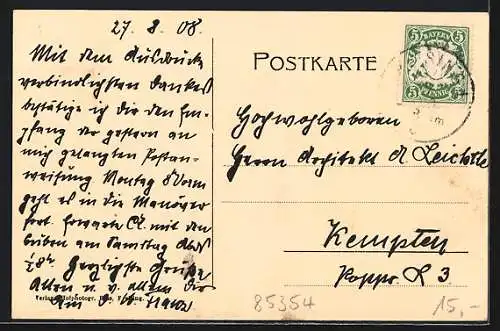 27. 8. 08.
Mit dem Ausdrucke
verbindlichsten Dankes
bestätige ich dir den Em-
pfang der gestern an
mich gelangten Postan-
weisung Montag 8 Vorm
geht es in die Manöver
fort. Erwarte Cl. mit den
Buben am Samstag Abds
½8h. Herzlichste Grüße
Allen u. v. allem Dir
POSTKARTE
BAYERN
5 5
5 PFENNIG 5
Hochwohlgeboren
Herrn Architekt A Leichtle
Kempten
85354
15,-